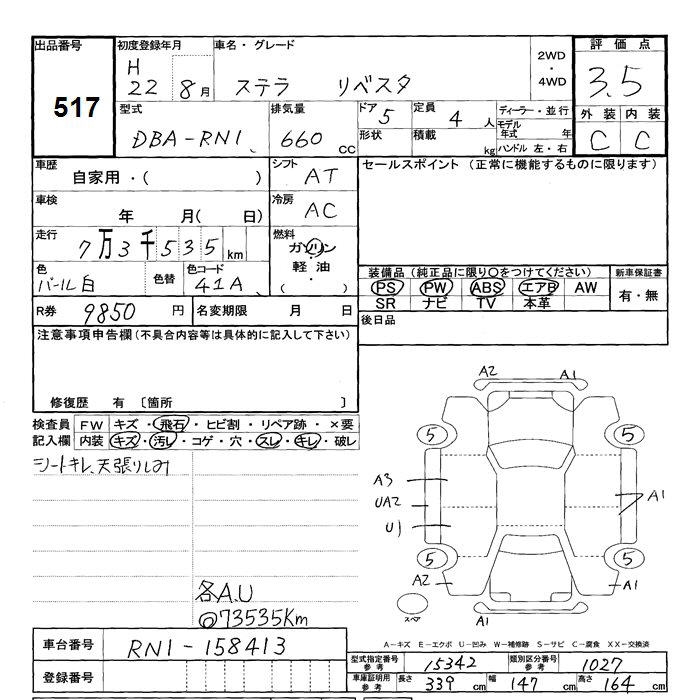 出品番号 517
初度登録年月 H 22 8月
車名・グレード ステラ リベスタ
2WD ・ 4WD
評価点 3.5
外装 内装
C C
型式 DBA-RN1
排気量 660 CC
ドア 5 定員 4 人
形状 積載 kg
ディーラー・並行
モデル年式 年
ハンドル 左・右
車歴 自家用・( )
シフト AT
車検 年 月( 日)
冷房 AC
走行 7万3千535km
燃料 ガソリン
軽油
( ・ )
色 パール白 色替 色コード 41A
セールスポイント (正常に機能するものに限ります)
装備品(純正品に限り○をつけてください) 新車保証書
PS PW ABS エアB AW 有・無
SR ナビ TV 本革
R券 9850 円 名変期限 月 日
後日品
注意事項申告欄(不具合内容等は具体的に記入して下さい)
修復歴 有 〔箇所 〕
検査員 FW キズ・飛石・ヒビ割・リペア跡・×要
記入欄 内装 キズ・汚レ・コゲ・穴・スレ・キレ・破レ
シートキレ、天張りしみ
各A.U
◎73535Km
A2 A1
5 5
A3
UA2 A1
U1
5 5
A2 A1
スペア A1
A-キズ E-エクボ U-凹み W-補修跡 S-サビ C-腐食 XX-交換済
車台番号 RN1-158413
登録番号
型式指定番号 参考 15342 類別区分番号 参考 1027
車庫証明用 参考 長さ 339 cm 幅 147 cm 高さ 164 cm